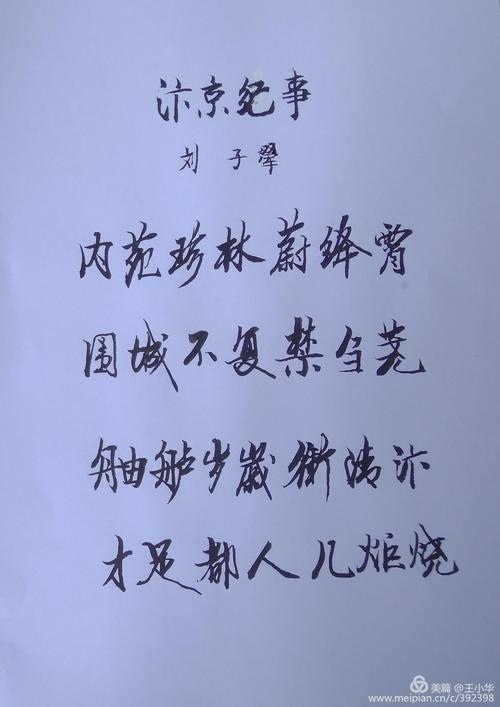 汴京纪事
刘子翚
内苑珍林蔚绛霄
围城不复禁刍荛
舳舻岁歲衔清汴
才足都人几炬烧
美篇 @王小华
www.meipian.cn/c/392398